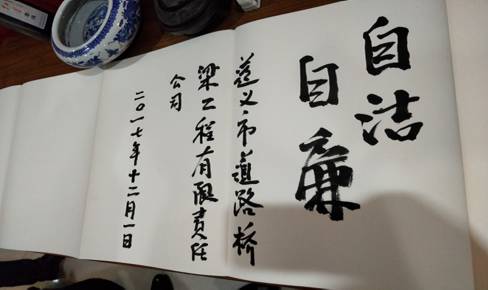 自洁
自廉
遵义市道路桥
梁工程有限责任
公司
二〇一七年十二月一日